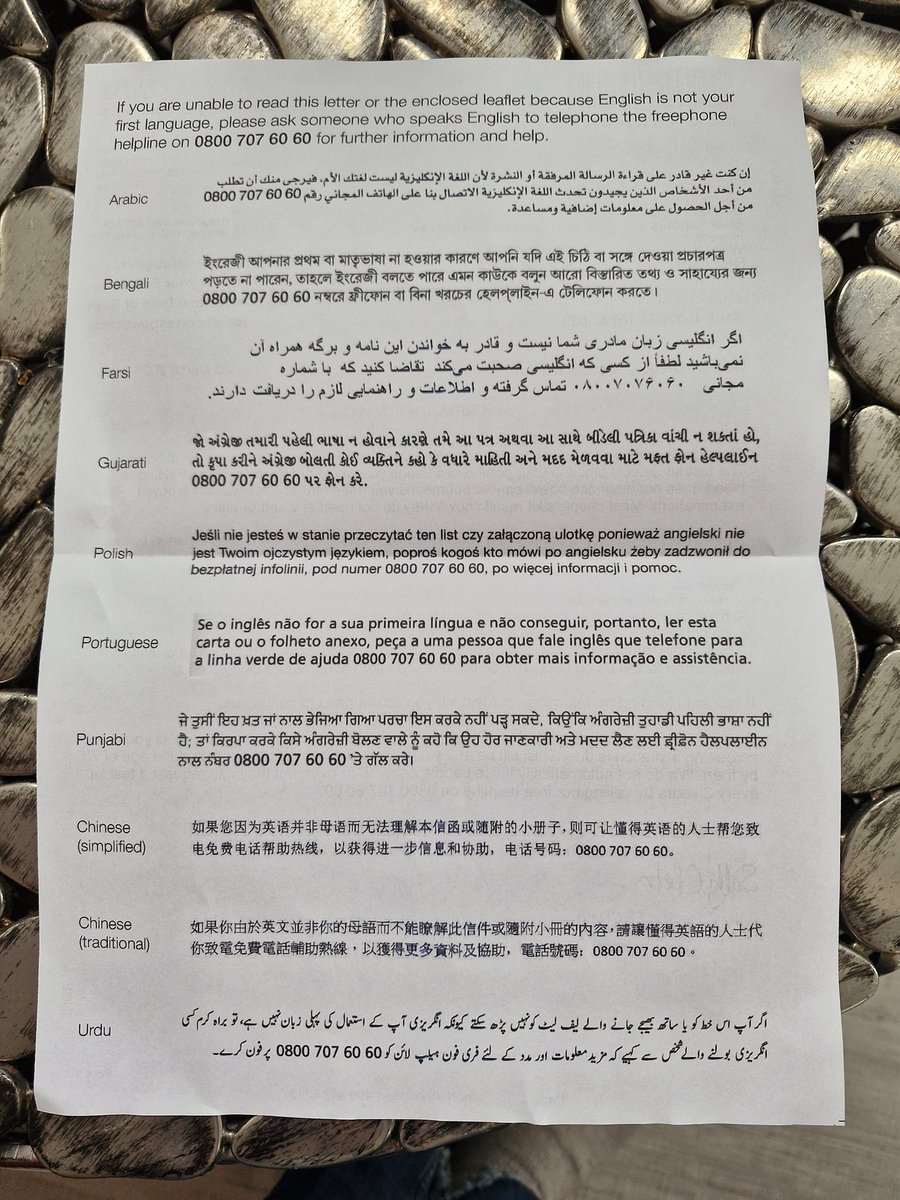 If you are unable to read this letter or the enclosed leaflet because English is not your
first language, please ask someone who speaks English to telephone the freephone
helpline on 0800 707 60 60 for further information and help.
Arabic
إن كنت غير قادر على قراءة الرسالة المرفقة أو النشرة لأن اللغة الإنكليزية ليست لغتك الأم، فيرجى منك أن تطلب
من أحد الأشخاص الذين يجيدون تحدث اللغة الإنكليزية الاتصال بنا على الهاتف المجاني رقم 0800 707 60 60
من أجل الحصول على معلومات إضافية ومساعدة.
Bengali
ইংরেজী আপনার প্রথম বা মাতৃভাষা না হওয়ার কারণে আপনি যদি এই চিঠি বা সঙ্গে দেওয়া প্রচারপত্র
পড়তে না পারেন, তাহলে ইংরেজী বলতে পারে এমন কাউকে বলুন আরো বিস্তারিত তথ্য ও সাহায্যের জন্য
0800 707 60 60 নম্বরে ফ্রীফোন বা বিনা খরচের হেল্প্‌লাইন-এ টেলিফোন করতে।
Farsi
اگر انگلیسی زبان مادری شما نیست و قادر به خواندن این نامه و برگه همراه آن
نمی‌باشید لطفاً از کسی که انگلیسی صحبت می‌کند تقاضا کنید که با شماره
مجانی ۰۸۰۰۷۰۷۶۰۶۰ تماس گرفته و اطلاعات و راهنمایی لازم را دریافت دارند.
Gujarati
જો અંગ્રેજી તમારી પહેલી ભાષા ન હોવાને કારણે તમે આ પત્ર અથવા આ સાથે બીડેલી પત્રિકા વાંચી ન શકતાં હો,
તો કૃપા કરીને અંગ્રેજી બોલતી કોઈ વ્યક્તિને કહો કે વધારે માહિતી અને મદદ મેળવવા માટે મફત ફોન હેલ્પલાઈન
0800 707 60 60 પર ફોન કરે.
Polish
Jeśli nie jesteś w stanie przeczytać ten list czy załączoną ulotkę ponieważ angielski nie
jest Twoim ojczystym językiem, poproś kogoś kto mówi po angielsku żeby zadzwonił do
bezpłatnej infolinii, pod numer 0800 707 60 60, po więcej informacji i pomoc.
Portuguese
Se o inglês não for a sua primeira língua e não conseguir, portanto, ler esta
carta ou o folheto anexo, peça a uma pessoa que fale inglês que telefone para
a linha verde de ajuda 0800 707 60 60 para obter mais informação e assistência.
Punjabi
ਜੇ ਤੁਸੀਂ ਇਹ ਖ਼ਤ ਜਾਂ ਨਾਲ ਭੇਜਿਆ ਗਿਆ ਪਰਚਾ ਇਸ ਕਰਕੇ ਨਹੀਂ ਪੜ੍ਹ ਸਕਦੇ, ਕਿਉਂਕਿ ਅੰਗਰੇਜ਼ੀ ਤੁਹਾਡੀ ਪਹਿਲੀ ਭਾਸ਼ਾ ਨਹੀਂ
ਹੈ; ਤਾਂ ਕਿਰਪਾ ਕਰਕੇ ਕਿਸੇ ਅੰਗਰੇਜ਼ੀ ਬੋਲਣ ਵਾਲੇ ਨੂੰ ਕਹੋ ਕਿ ਉਹ ਹੋਰ ਜਾਣਕਾਰੀ ਅਤੇ ਮਦਦ ਲੈਣ ਲਈ ਫ਼੍ਰੀਫ਼ੋਨ ਹੈਲਪਲਾਈਨ
ਨਾਲ ਨੰਬਰ 0800 707 60 60 'ਤੇ ਗੱਲ ਕਰੇ।
Chinese
(simplified)
如果您因为英语并非母语而无法理解本信函或随附的小册子，则可让懂得英语的人士帮您致
电免费电话帮助热线，以获得进一步信息和协助，电话号码：0800 707 60 60。
Chinese
(traditional)
如果你由於英文並非你的母語而不能瞭解此信件或隨附小冊的內容，請讓懂得英語的人士代
你致電免費電話輔助熱線，以獲得更多資料及協助，電話號碼：0800 707 60 60。
Urdu
اگر آپ اس خط کو یا ساتھ بھیجے جانے والے لیف لیٹ کو نہیں پڑھ سکتے کیونکہ انگریزی آپ کے استعمال کی پہلی زبان نہیں ہے، تو براہ کرم کسی
انگریزی بولنے والے شخص سے کہیے کہ مزید معلومات اور مدد کے لئے فری فون ہیلپ لائن کو 0800 707 60 60 پر فون کرے۔